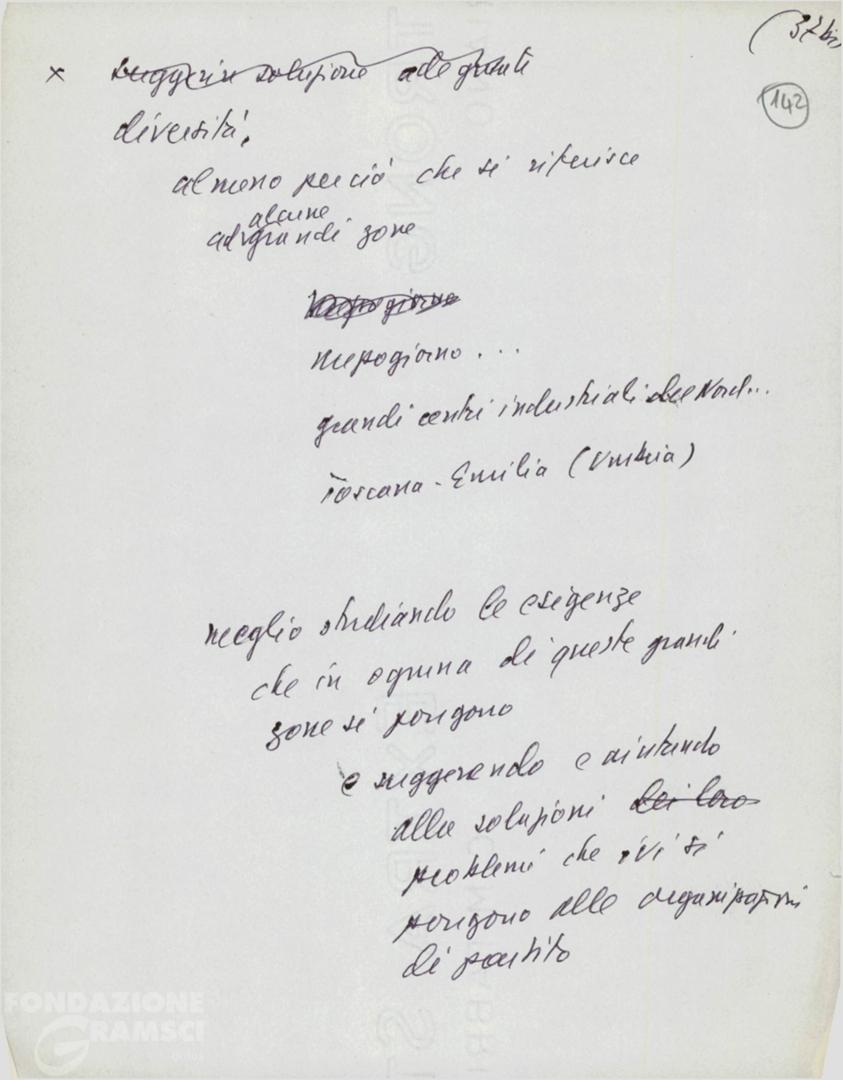 (37 bis
142
x suggerire soluzione adeguate
diversità,
almeno per ciò che si riferisce
alcune
ad grandi zone
mezzogiorno
mezzogiorno...
grandi centri industriali del Nord...
Toscana - Emilia (Umbria)
meglio studiando le esigenze
che in ognuna di queste grandi
zone si pongono
e suggerendo e aiutando
alla soluzioni dei loro
problemi che ivi si
pongono alle organizzazioni
di partito
FONDAZIONE
GRAMSCI